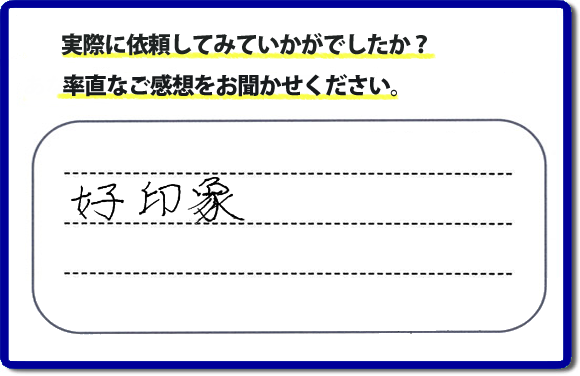 実際に依頼してみていかがでしたか？
率直なご感想をお聞かせください。
好印象